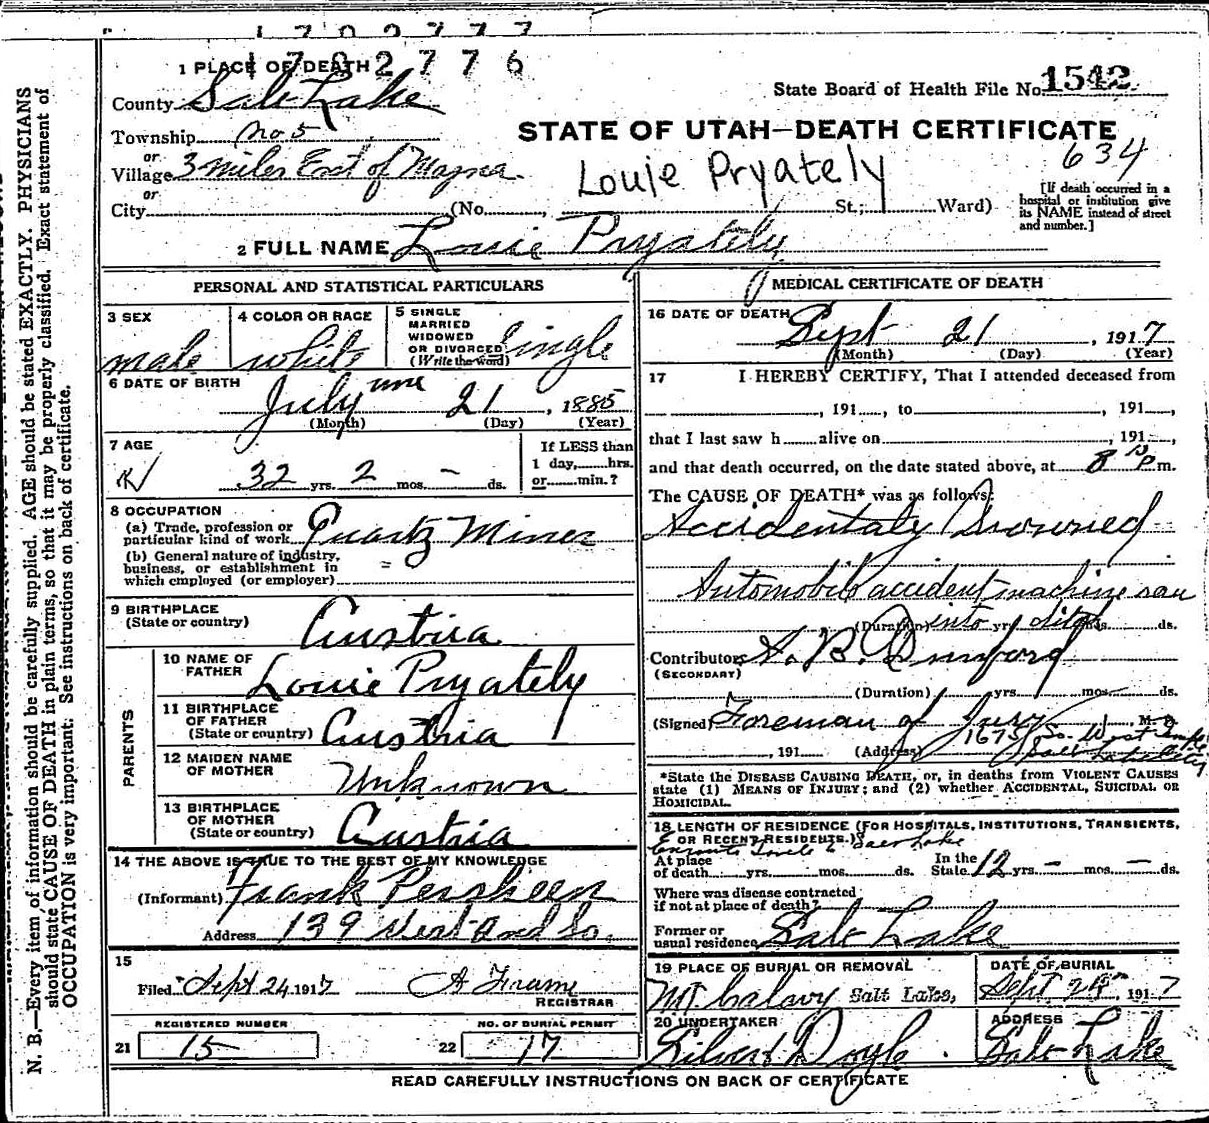 1702777
1702776
1 PLACE OF DEATH
State Board of Health File No. 1542
County Salt Lake
Township No 5
STATE OF UTAH—DEATH CERTIFICATE
634
or
Village 3 miles East of Magna
Louie Pryately
or
City (No. , St.; Ward)
[If death occurred in a hospital or institution give its NAME instead of street and number.]
2 FULL NAME Louie Pryately
PERSONAL AND STATISTICAL PARTICULARS
3 SEX
male
4 COLOR OR RACE
white
5 SINGLE
MARRIED
WIDOWED
OR DIVORCED
(Write the word)
Single
6 DATE OF BIRTH
July 21, 1885
(Month) (Day) (Year)
7 AGE
32 yrs. 2 mos. - ds.
If LESS than
1 day, hrs.
or min.?
8 OCCUPATION
(a) Trade, profession or
particular kind of work Quartz Miner
(b) General nature of industry,
business, or establishment in
which employed (or employer)
9 BIRTHPLACE
(State or country)
Austria
PARENTS
10 NAME OF
FATHER
Louie Pryately
11 BIRTHPLACE
OF FATHER
(State or country)
Austria
12 MAIDEN NAME
OF MOTHER
Unknown
13 BIRTHPLACE
OF MOTHER
(State or country)
Austria
14 THE ABOVE IS TRUE TO THE BEST OF MY KNOWLEDGE
(Informant) Frank Persheen
Address 139 West 2nd So.
15
Filed Sept 24 1917 A Frame
REGISTRAR
REGISTERED NUMBER
21 15
NO. OF BURIAL PERMIT
22 17
MEDICAL CERTIFICATE OF DEATH
16 DATE OF DEATH
Sept 21, 1917
(Month) (Day) (Year)
17 I HEREBY CERTIFY, That I attended deceased from
, 191 , to , 191 ,
that I last saw h alive on , 191 ,
and that death occurred, on the date stated above, at 8 P m.
The CAUSE OF DEATH* was as follows:
Accidentaly Drowned
Automobile accident machine ran
into ditch
(Duration) yrs. mos. ds.
Contributory
(SECONDARY)
(Duration) yrs. mos. ds.
(Signed) Foreman of Jury M. D.
, 191 (Address) 1675 So. West Temple
Salt Lake City
*State the DISEASE CAUSING DEATH, or, in deaths from VIOLENT CAUSES
state (1) MEANS OF INJURY; and (2) whether ACCIDENTAL, SUICIDAL OR
HOMICIDAL.
18 LENGTH OF RESIDENCE (FOR HOSPITALS, INSTITUTIONS, TRANSIENTS,
OR RECENT RESIDENTS.)
Enroute Tooele to Salt Lake
At place
of death yrs. mos. ds.
In the
State 12 yrs. - mos. - ds.
Where was disease contracted
if not at place of death?
Former or
usual residence Salt Lake
19 PLACE OF BURIAL OR REMOVAL
Mt Calavy Salt Lake,
DATE OF BURIAL
Sept 24, 1917
20 UNDERTAKER
Doyle
ADDRESS
Salt Lake
READ CAREFULLY INSTRUCTIONS ON BACK OF CERTIFICATE
N. B.—Every item of information should be carefully supplied. AGE should be stated EXACTLY. PHYSICIANS
should state CAUSE OF DEATH in plain terms, so that it may be properly classified. Exact statement of
OCCUPATION is very important. See instructions on back of certificate.